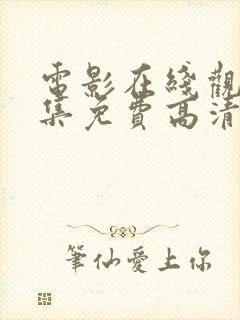 電影在綫觀
集免費高清
筆仙愛上你